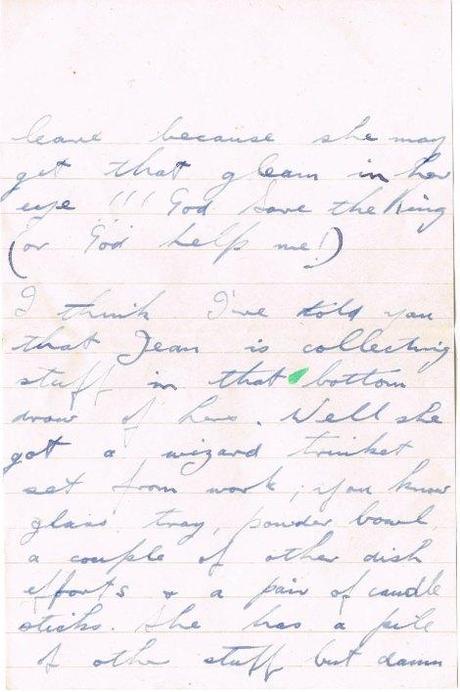 leave because she may
get that gleam in her
eye !!! God save the King
(or God help me!)
I think I've told you
that Jean is collecting
stuff in that bottom
draw of hers. Well she
got a wizard trinket
set from work; you know
glass tray, powder bowl,
a couple of other dish
efforts & a pair of candle
sticks. She has a pile
of other stuff but damn